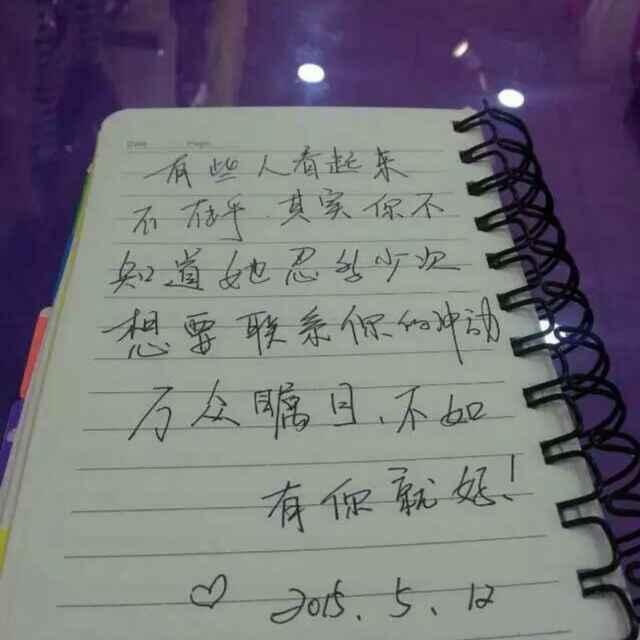 Date Page
有些人看起来
不存乎.其实你不
知道她忍多少次
想要联系你的冲动
万众瞩目、不如
有你就好!
♡ 2015. 5. 12